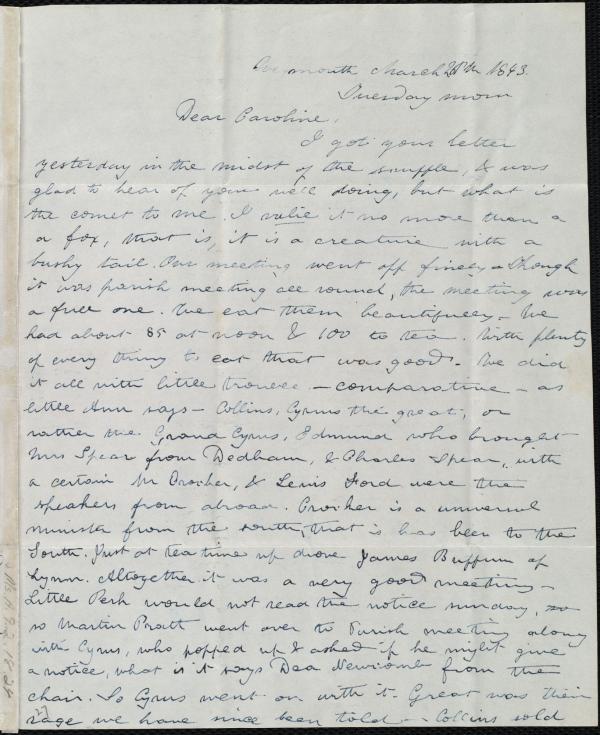 Weymouth March 28th 1843.
Tuesday morn
Dear Caroline,
I got your letter
yesterday in the midst of the snuffle, & was
glad to hear of your well doing, but what is
the comet to me. I value it no more than a
a fox, that is, it is a creature with a
bushy tail. Our meeting went off finely - though
it was parish meeting all round, the meeting was
a full one. We eat them beautifully - We
had about 85 at noon & 100 to tea. With plenty
of every thing to eat that was good - We did
it all with little trouble - comparative - as
little Ann says - Collins, Cyrus the great, or
rather the Grand Cyrus, Edmund who brought
Mrs Spear from Dedham, & Charles Spear, with
a certain Mr Crocker, & Lewis Ford were the
speakers from abroad. Crocker is a universal
minister from the south, that is has been to the
South. Just at tea time up drove James Buffum of
Lynn. Altogether it was a very good meeting -
Little Perk would not read the notice sunday, so
so Martin Pratt went over to Parish meeting along
with Cyrus, who popped up & asked if he might give
a notice, what is it says Dea Newcomb from the
chair. So Cyrus went on with it - Great was their
rage we have since been told - Collins sold